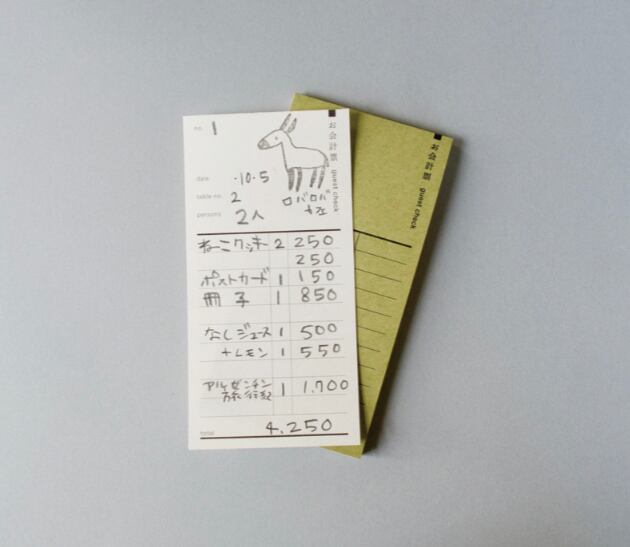 no. 1
お会計票 guest check
date ・10・5
table no. 2
persons 2人
ロバロバ
カフェ
ねこクッキー 2 250
250
ポストカード 1 150
冊子 1 850
なしジュース 1 500
+レモン 1 550
アルゼンチン
旅行記 1 1.700
total 4.250
お会計票 guest check